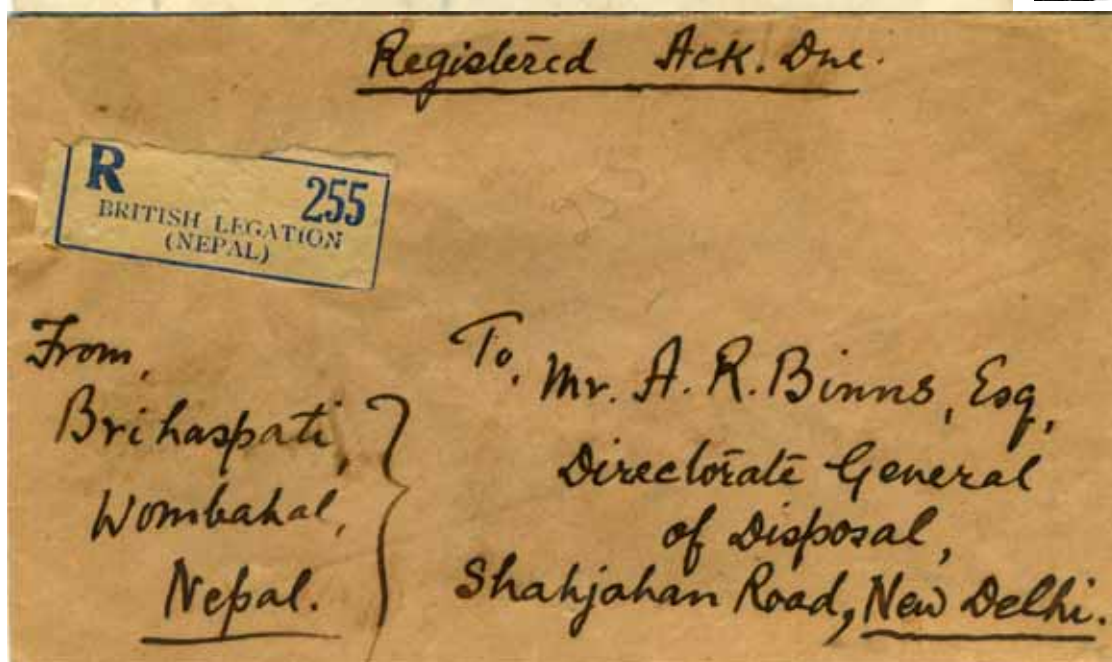 Registered Ack. Due.
R 255
BRITISH LEGATION
(NEPAL)
From,
Brihaspati,
Wombahal,
Nepal.
To, Mr. A. R. Binns, Esq,
Directorate General
of Disposal,
Shahjahan Road, New Delhi.